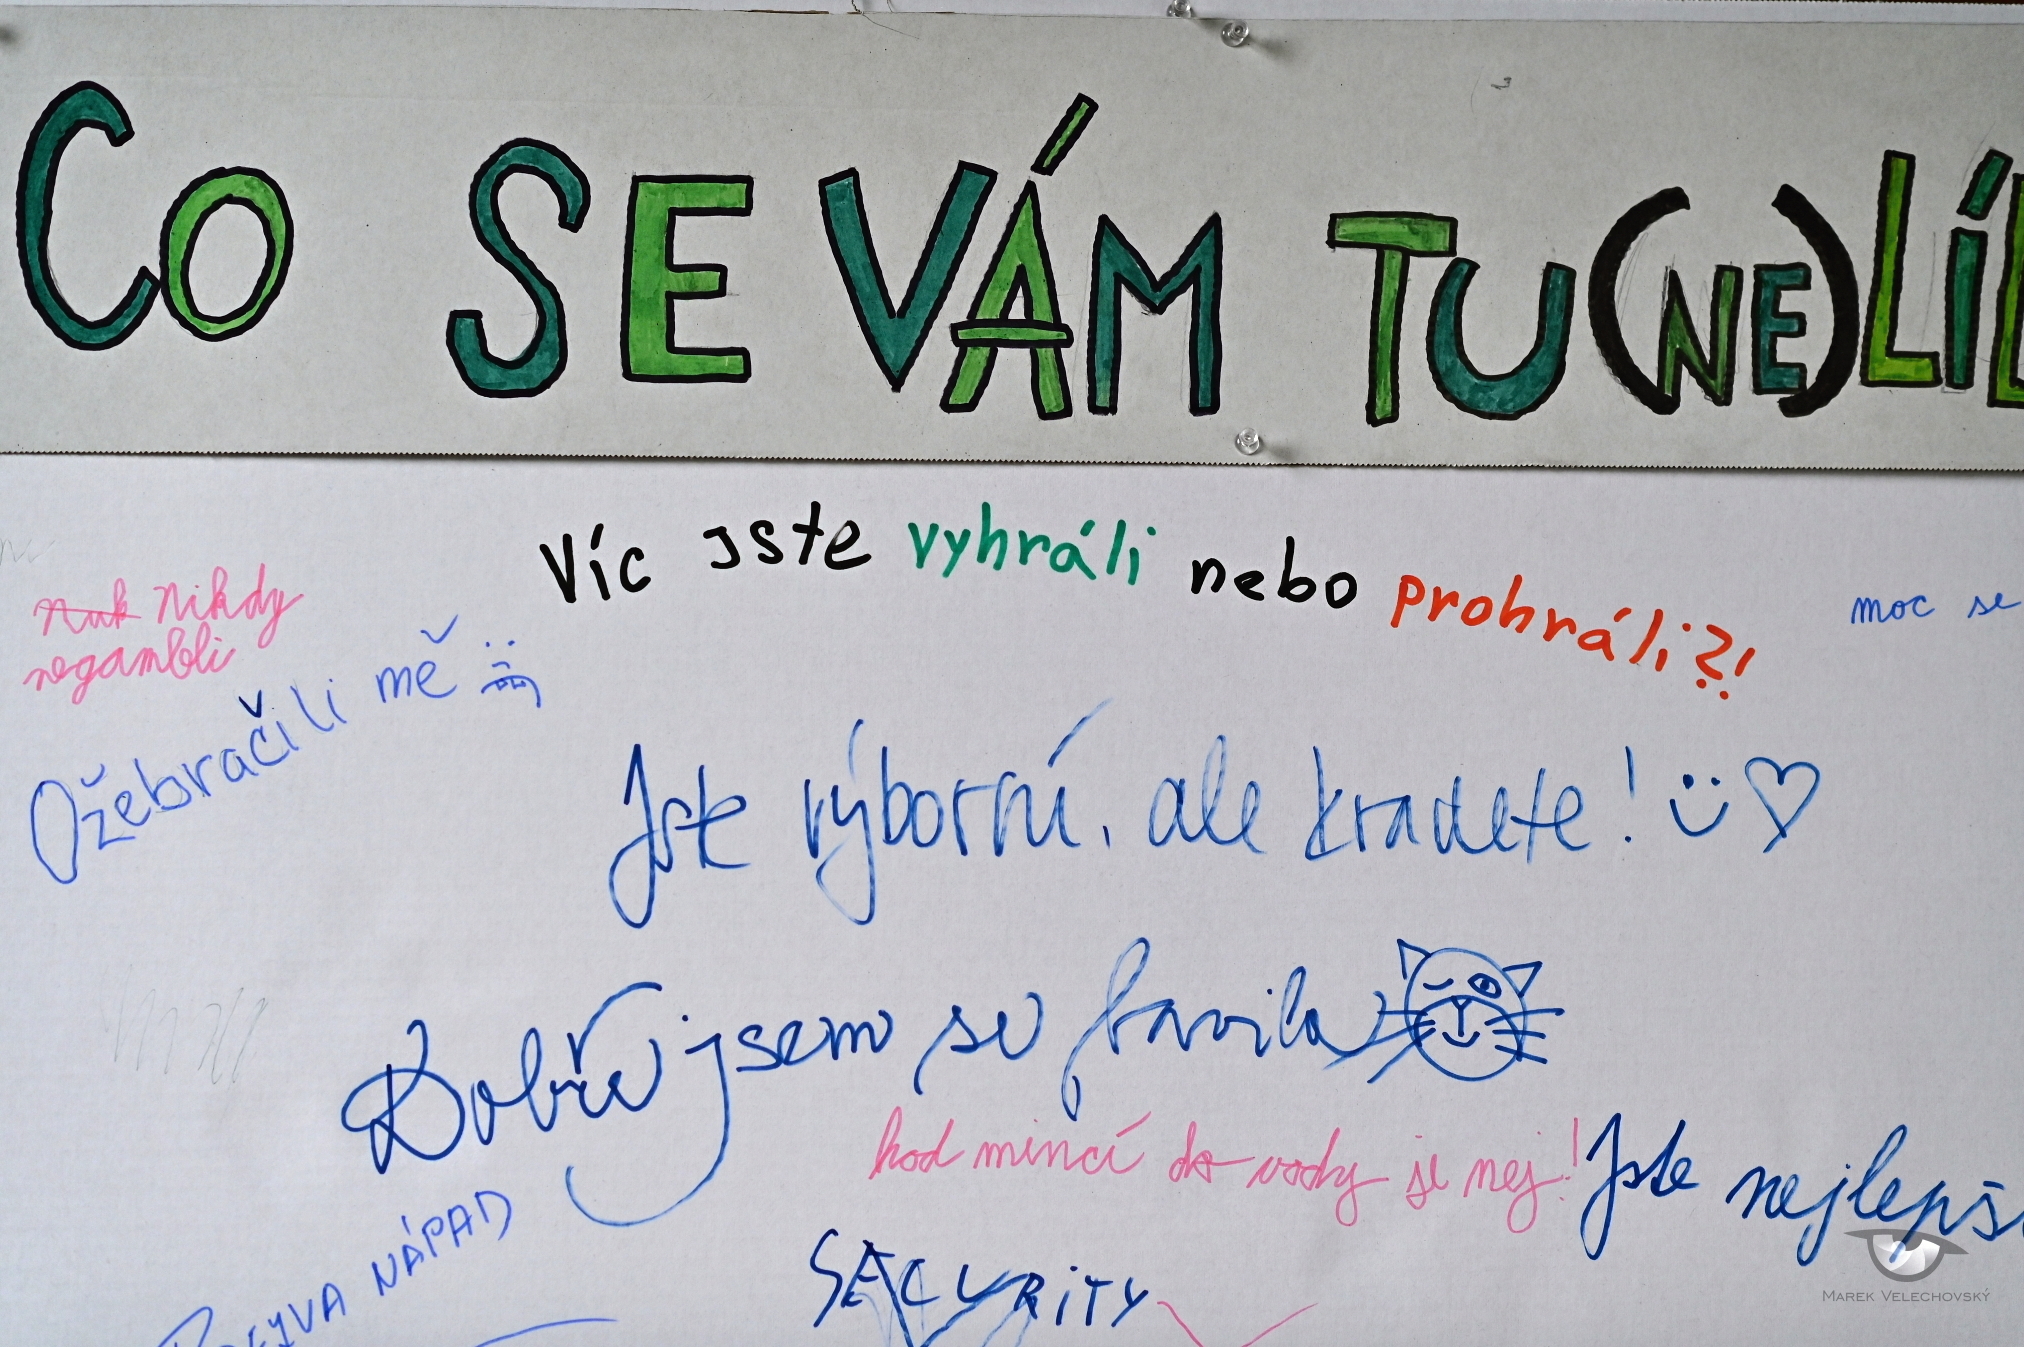 CO SE VÁM TU (NE) LÍB
Víc jste vyhráli nebo prohráli?!
nikdy
negambli
moc se
Ožebračili mě
Jste výborní, ale kradete!
Dobře jsem se bavila
hod mincí do vody je nej!
Jste nejlepš
NÁPAD
SECURITY
MAREK VELECHOVSKÝ